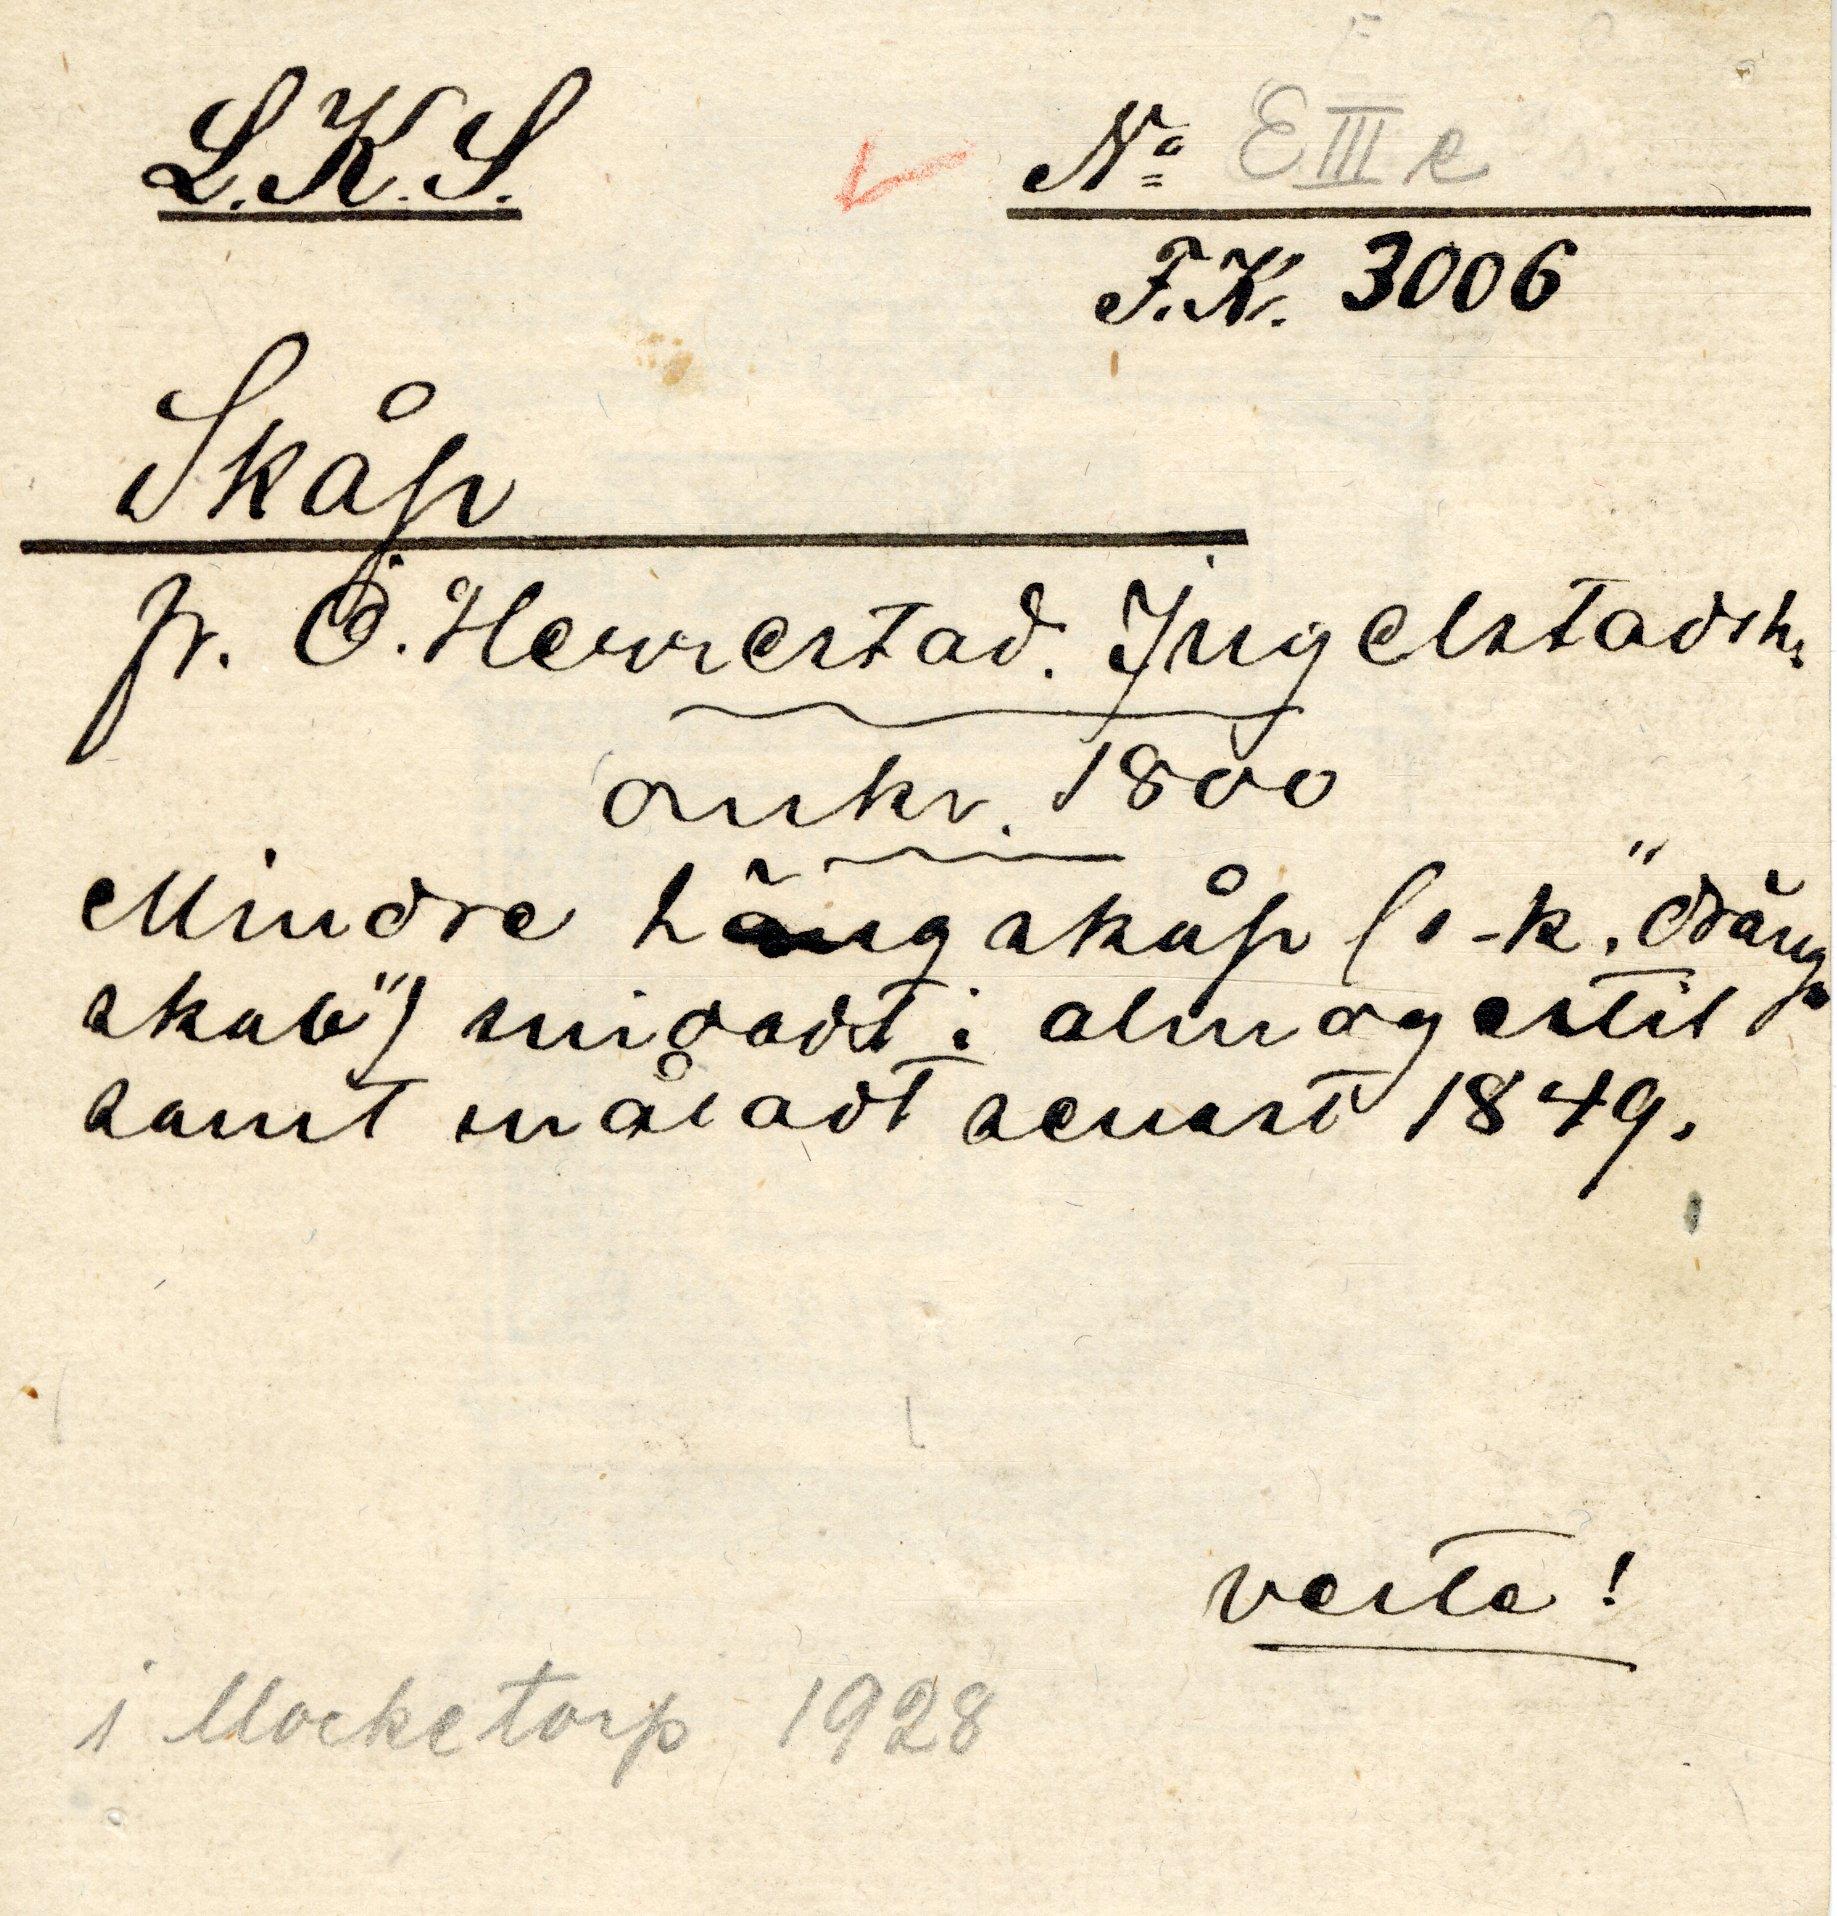 L.K.S.
No E III e
F.K. 3006
Skåp
fr. Ö. Herrestad. Ingelstadsh.
omkr. 1800
Mindre hängskåp (s-k. "dräng-
skab") snidadt i almogestil
samt måladt senast 1849.
verte!
i Mocketorp 1928